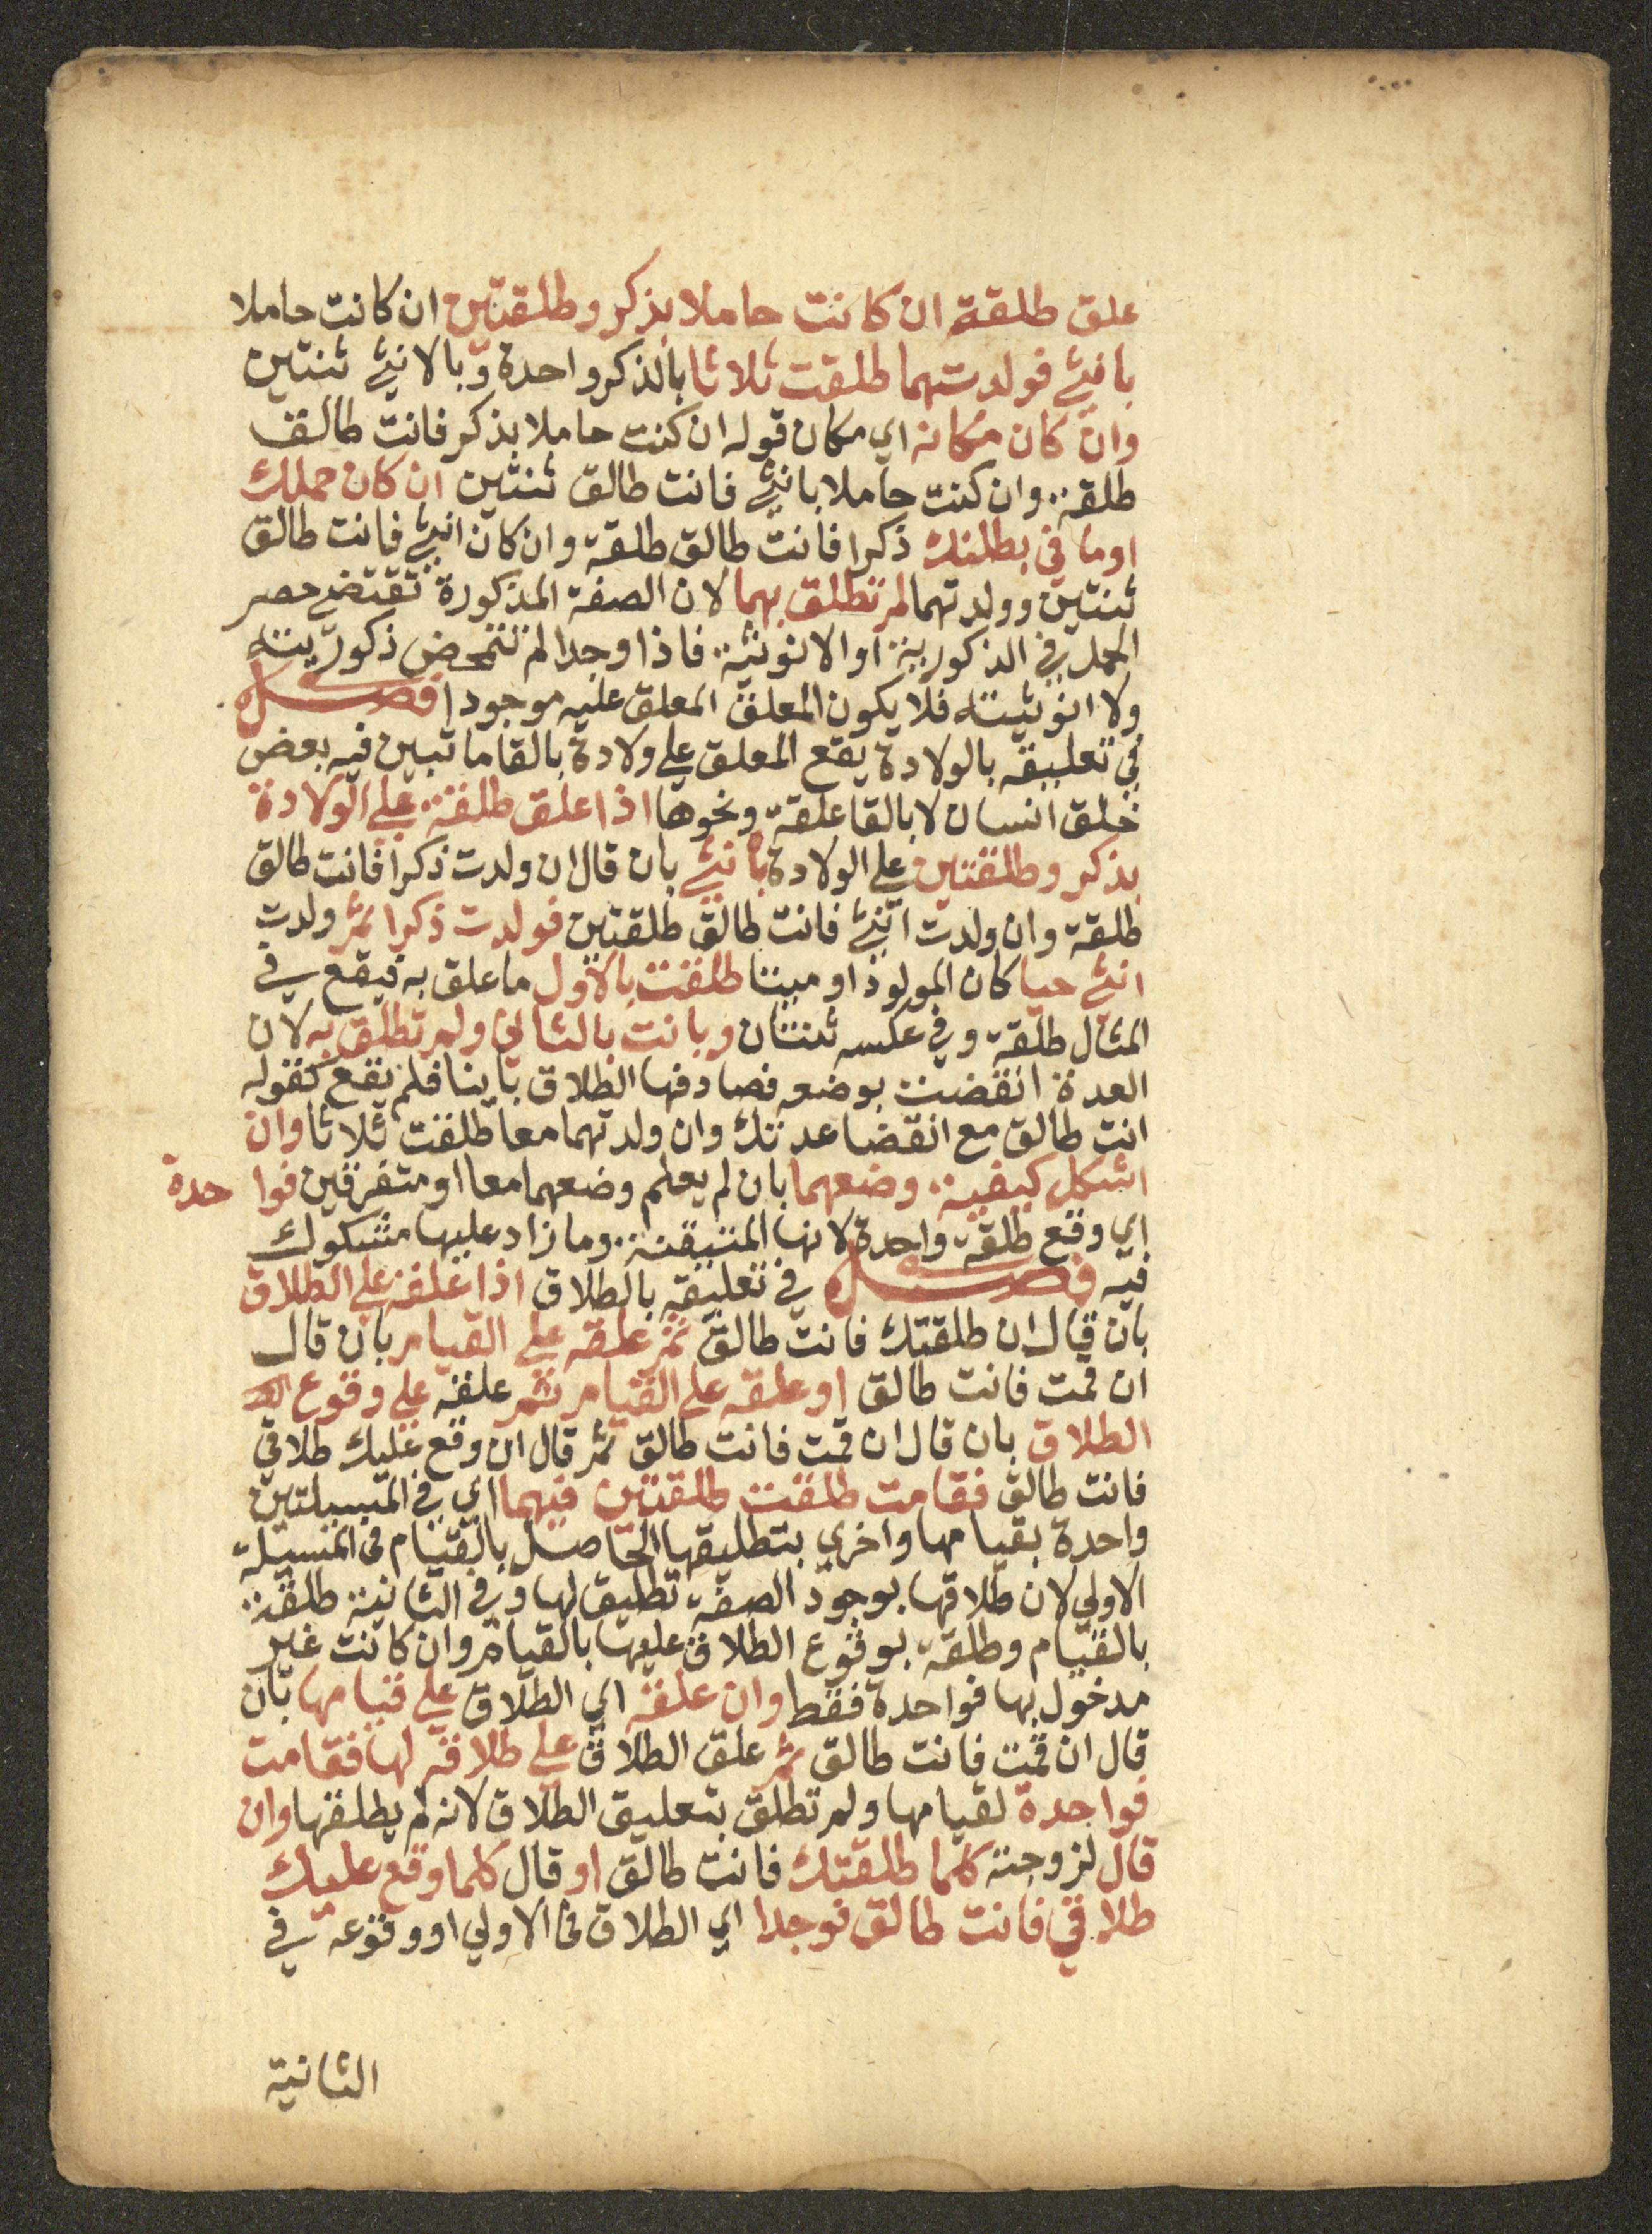 علق طلقة ان كانت حاملا بذكر وطلقتين ان كانت حاملا
بانثي فولدتهما طلقت ثلاثا بالذكر واحدة وبالانثي ثنتين
وان كان مكانه اي مكان قوله ان كنت حاملا بذكر فانت طالق
طلقة وان كنت حاملا بانثي فانت طالق ثنتين ان كان حملك
او ما في بطنك ذكرا فانت طالق طلقة وان كان انثي فانت طالق
ثنتين وولدتهما لم تطلق بهما لان الصفة المذكورة تقتضي حصر
الحمل في الذكورية او الانوثية فاذا وجدا لم تتمحض ذكوريته
ولا انوثيته فلا يكون المعلق المعلق عليه موجودا فصل
في تعليقه بالولادة يقع المعلق علي ولادة بالقا ما تبين فيه بعض
خلق انسان لا بالقا علقة ونحوها اذا علق طلقة علي الولادة
بذكر وطلقتين علي الولادة بانثي بان قال ان ولدت ذكرا فانت طالق
طلقة وان ولدت انثي فانت طالق طلقتين فولدت ذكرا ثم ولدت
انثي حيا كان المولود او ميتا طلقت بالاول ما علق به فيقع في
المثال طلقة وفي عكسه ثنتان وبانت بالثاني ولم تطلق به لان
العدة انقضت بوضعه فصادفها الطلاق باينا فلم يقع كقوله
انت طالق مع انقضا عدتك وان ولدتهما معا طلقت ثلاثا وان
اشكل كيفية وضعهما بان لم يعلم وضعهما معا او متفرقين فوا حدة
اي وقع طلقة واحدة لانها المتيقنة وما زاد عليها مشكوك
فيه فصل في تعليقه بالطلاق اذا علقه علي الطلاق
بان قال ان طلقتك فانت طالق ثم علقه علي القيام بان قال
ان قمت فانت طالق او علقه علي القيام ثم علقه علي وقوع
الطلاق بان قال ان قمت فانت طالق ثم قال ان وقع عليك طلاقي
فانت طالق فقامت طلقت طلقتين فيهما اي في المسيلتين
واحدة بقيامها واخري بتطليقها الحاصل بالقيام في المسيلة
الاولي لان طلاقها بوجود الصفة تطليق لها وفي الثانية طلقة
بالقيام وطلقة بوقوع الطلاق عليها بالقيام وان كانت غير
مدخول بها فواحدة فقط وان علقه اي الطلاق علي قيامها بان
قال ان قمت فانت طالق ثم علق الطلاق علي طلاقه لها فقامت
فواحدة لقيامها ولم تطلق بتعليق الطلاق لانه لم يطلقها وان
قال لزوجته كلما طلقتك فانت طالق او قال كلما وقع عليك
طلاقي فانت طالق فوجدا اي الطلاق في الاولي او وقوعه في
الثانية